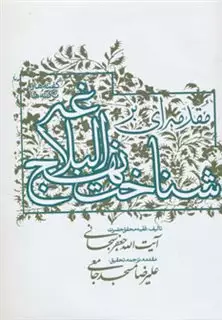 مقدمه‌ای بر
شناخت نهج البلاغه
تألیف: فقیه محقق حضرت
آیت الله جعفر سبحانی
مقدمه، ترجمه، تحقیق
علیرضا مسجد جامعی